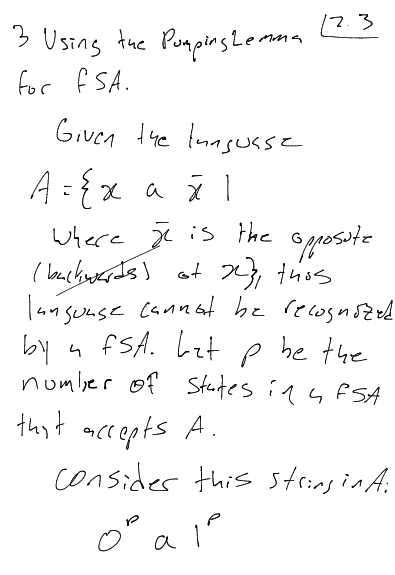 3 Using the Pumping Lemma 7.3
for FSA.
Given the language
A = {x a x̄ |
where x̄ is the opposite
(backwards) of x}, this
language cannot be recognized
by a FSA. Let p be the
number of states in a FSA
that accepts A.
Consider this string in A:
0ᵖ a 1ᵖ